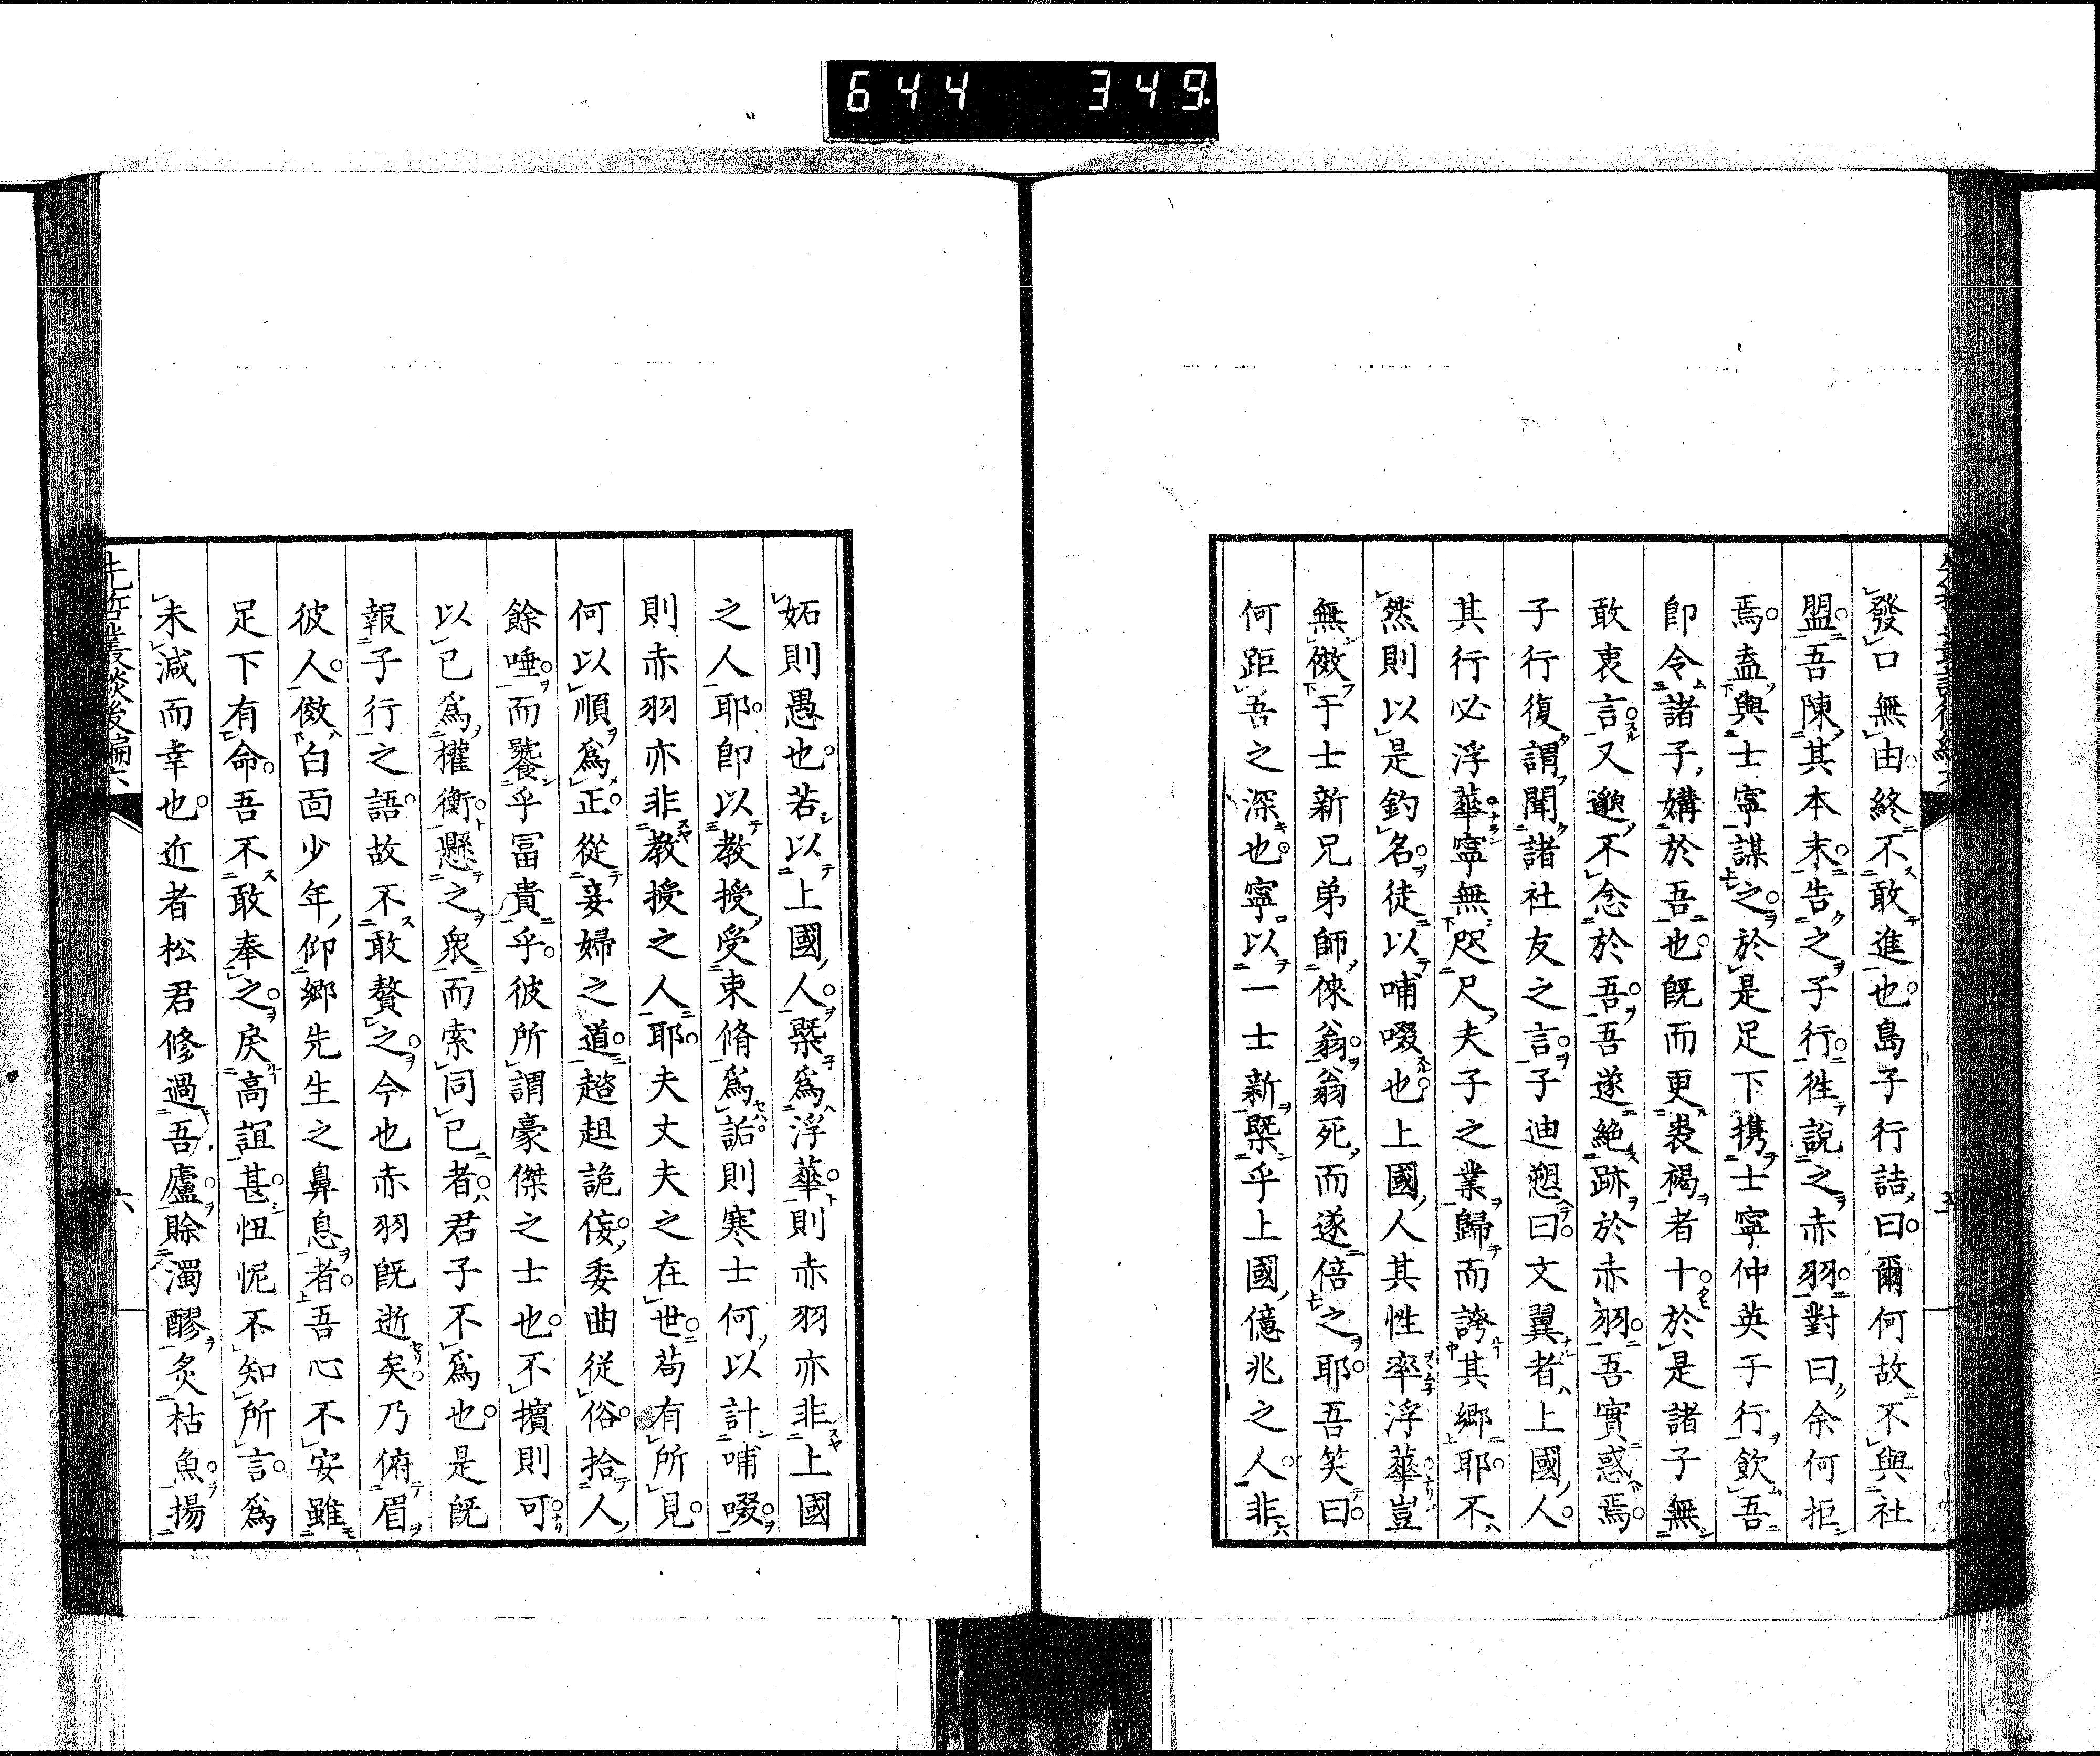 644 349.
發口無由終不敢進也島子行詰曰爾何故不與社
盟吾陳其本末告之子行徃說之赤羽對曰余何拒
焉盍與士寧謀之於是足下携士寧仲英于行飲吾
卽令諸子媾於吾也旣而更裘褐者十於是諸子無
敢衷言又邈不念於吾吾遂絕跡於赤羽吾實惑焉
子行復謂聞諸社友之言子迪愬曰文翼者上國人
其行必浮華寧無咫尺夫子之業歸而誇其鄉耶不
然則以是釣名徒以哺啜也上國人其性率浮華豈
無傚于士新兄弟師徠翁翁死而遂倍之耶吾笑曰
何距吾之深也寧以一士新槩乎上國億兆之人非
妬則愚也若以上國人槩爲浮華則赤羽亦非上國
之人耶卽以教授受束脩爲詬則寒士何以計哺啜
則赤羽亦非教授之人耶夫丈夫之在世茍有所見
何以順爲正從妾婦之道趦趄詭侫委曲從俗拾人
餘唾而饕乎冨貴乎彼所謂豪傑之士也不擯則可
以已爲權衡懸之衆而索同已者君子不爲也是旣
報子行之語故不敢贅之今也赤羽旣逝矣乃俯眉
彼人傚白面少年仰鄉先生之鼻息者吾心不安雖
足下有命吾不敢奉之戾高誼甚忸怩不知所言爲
未減而幸也近者松君修過吾廬賒濁醪炙枯魚揚
先哲叢談後編六
六